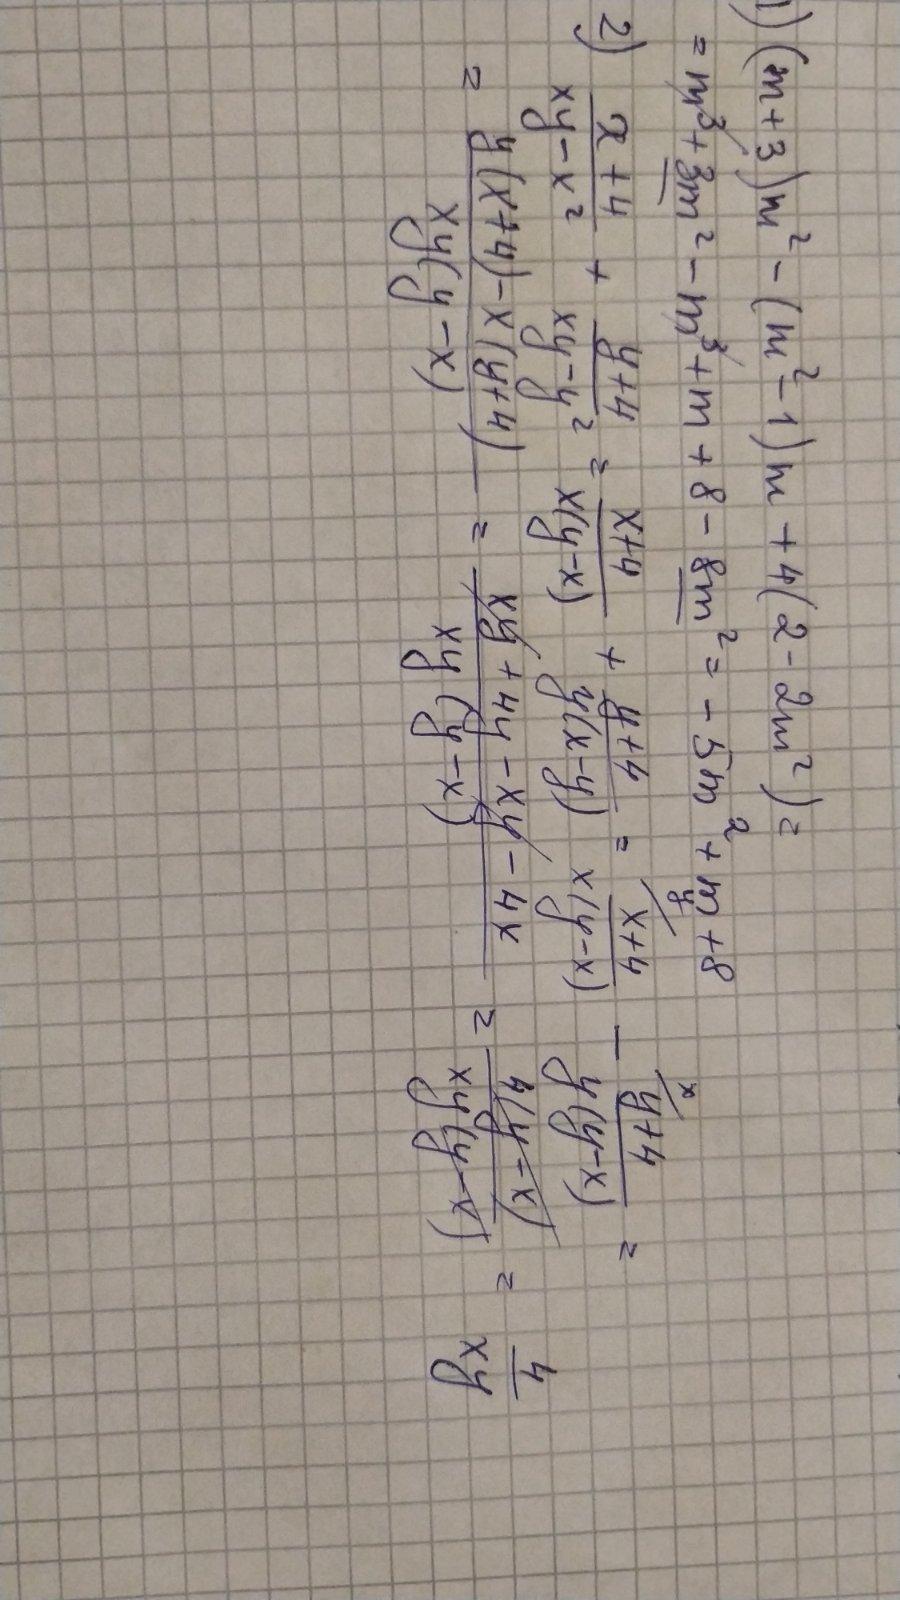 1) (m+3)m² - (m²-1)m + 4(2-2m²) =
= m³ + 3m² - m³ + m + 8 - 8m² = -5m² + m + 8
2) (x+4)/(xy-x²) + (y+4)/(xy-y²) = (x+4)/(x(y-x)) + (y+4)/(y(x-y)) = (x+4)^y/(x(y-x)) - (y+4)^x/(y(y-x)) =
= (y(x+4)-x(y+4))/(xy(y-x)) = (xy+4y-xy-4x)/(xy(y-x)) = (4(y-x))/(xy(y-x)) = 4/(xy)